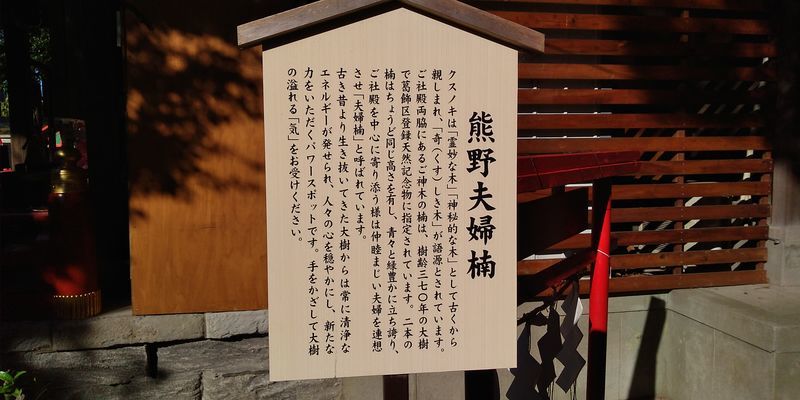 熊野夫婦楠
クスノキは「霊妙な木」「神秘的な木」として古くから
親しまれ、「奇（くす）しき木」が語源とされています。
ご社殿両脇にあるご神木の楠は、樹齢三七〇年の大樹
で葛飾区登録天然記念物に指定されています。二本の
楠はちょうど同じ高さを有し、青々と緑豊かに立ち誇り、
ご社殿を中心に寄り添う様は仲睦まじい夫婦を連想
させ「夫婦楠」と呼ばれています。
古き昔より生き抜いてきた大樹からは常に清浄な
エネルギーが発せられ、人々の心を穏やかにし、新たな
力をいただくパワースポットです。手をかざして大樹
の溢れる「気」をお受けください。